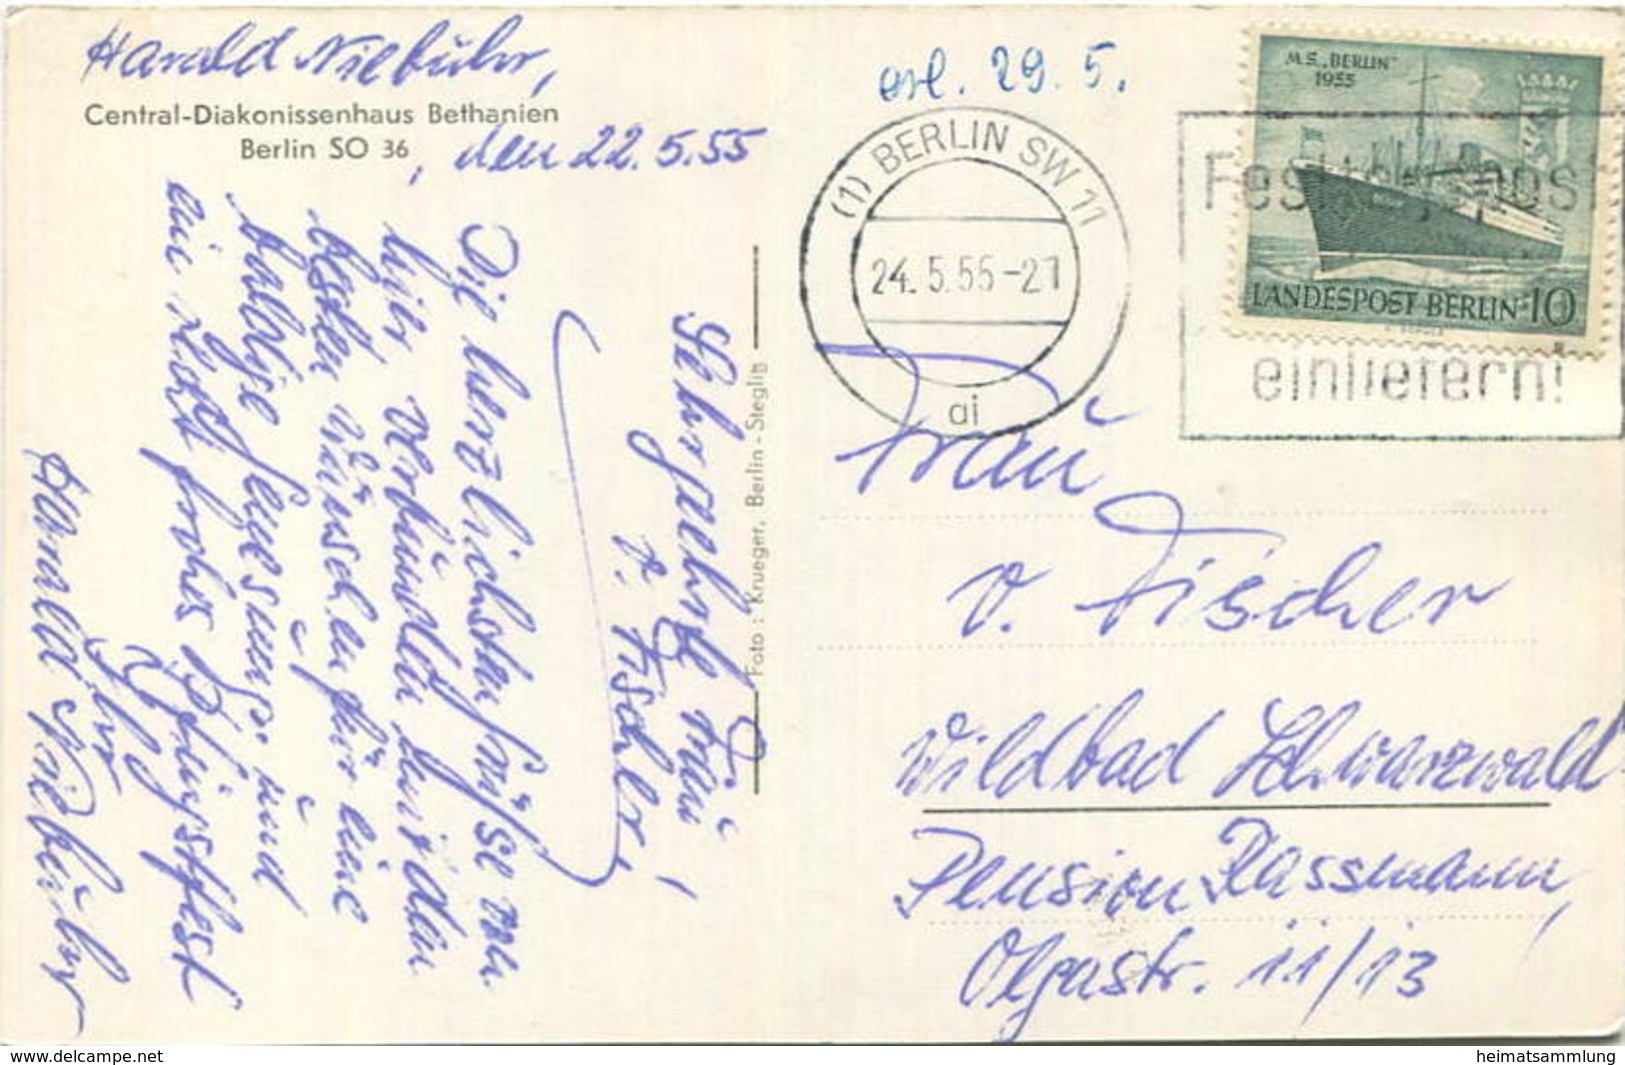 Harald Niebuhr,
Central-Diakonissenhaus Bethanien
Berlin SO 36
, den 22.5.55
Sehr geehrte Frau
v. Fischer,
Die herzlichsten Grüße von
hier verbunden mit den
besten Wünschen für eine
baldige Genesung und
ein recht frohes Pfingstfest
Ihr
Harald Niebuhr
Foto: Krueger, Berlin-Steglitz
erl. 29. 5.
(1) BERLIN SW 11
24.5.55-21
ai
M.S. „BERLIN"
1955
LANDESPOST BERLIN 10
einliefern!
Frau
v. Fischer
Wildbad Schwarzwald
Pension Rassmann,
Olgastr. 11/13
www.delcampe.net
heimatsammlung